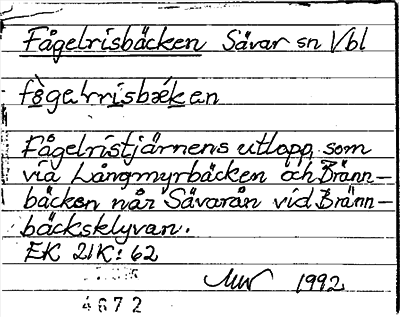 Fågelrisbäcken Sävar sn Vbl
fògelrrisbæken
Fågelristjärnens utlopp som
via Långmyrbäcken och Bränn-
bäcken når Sävarån vid Bränn-
bäcksklyvan.
EK 21K: 62
1992
4672